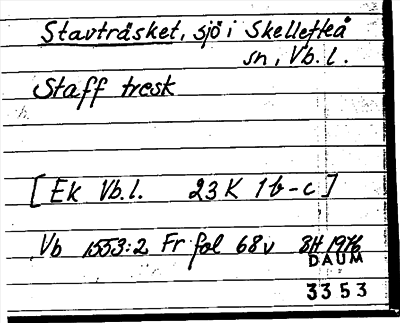 Stavträsket, sjö i Skellefteå
sn, Vb. l.
Staff tresk
[Ek Vb. l. 23 K 1 b-c]
Vb 1553:2 Fr fol 68v 8H 1976
DAUM
3353